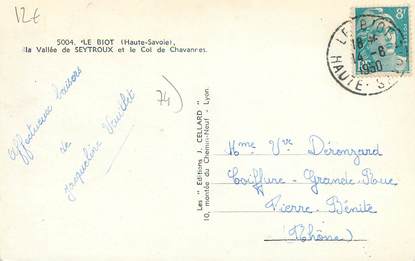 12€
5004. LE BIOT (Haute-Savoie),
la Vallée de SEYTROUX et le Col de Chavannes.
LE BIOT
18 H
14 - 8
1950
HAUTE-S
8F
74)
Affectueux baisers
de
Jacqueline
Les "Editions J. CELLARD" - Lyon.
10, montée du Chemin-Neuf
Mme Vve Déronzard
Coiffure - Grande Rue
Pierre-Bénite
(Rhône)